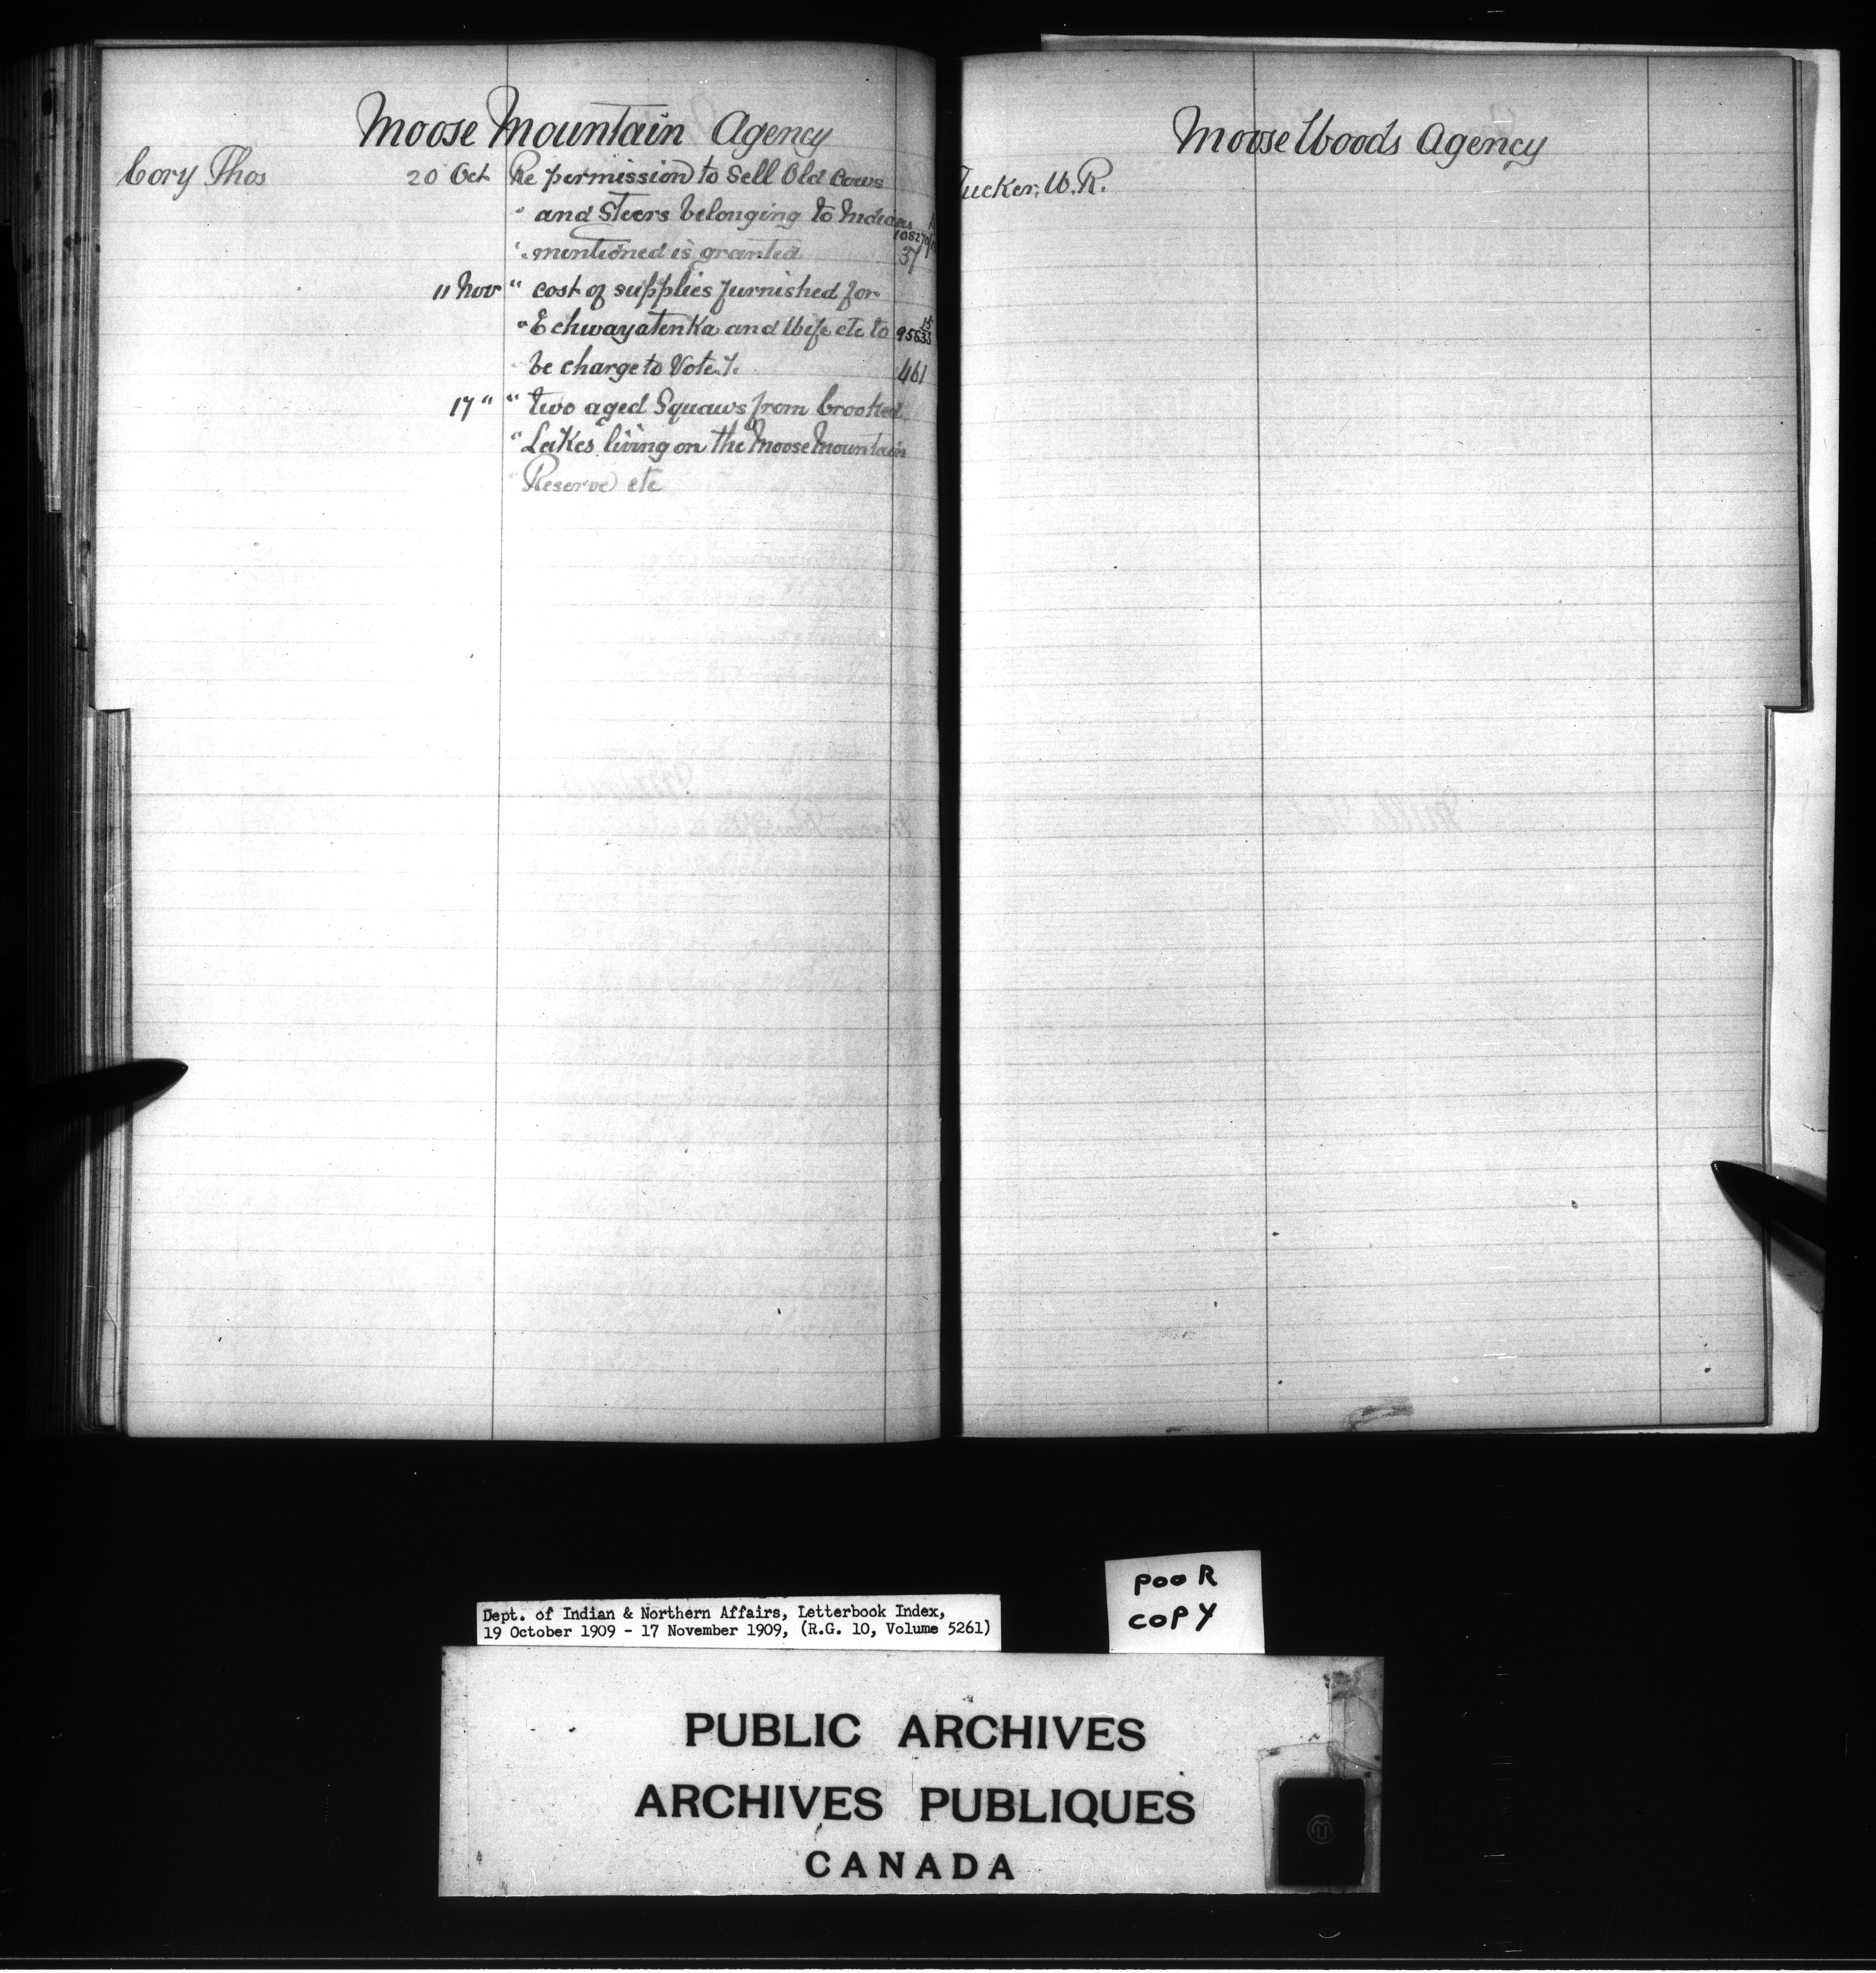 Moose Mountain Agency
Cory Thos 20 Oct Re permission to Sell Old Cows
" and Steers belonging to Indians
" mentioned is granted 37
11 Nov " cost of supplies furnished for
" Echwayatenka and Wife etc to
be charge to Vote 461
17 " " two aged Squaws from Crooked
" Lakes living on the Moose Mountain
Reserve etc
Moose Woods Agency
Tucker, W.R.
Dept. of Indian & Northern Affairs, Letterbook Index,
19 October 1909 - 17 November 1909, (R.G. 10, Volume 5261)
POOR
COPY
PUBLIC ARCHIVES
ARCHIVES PUBLIQUES
CANADA